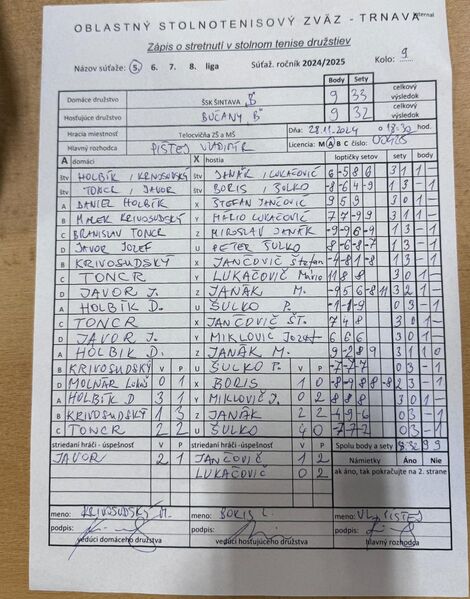 OBLASTNÝ STOLNOTENISOVÝ ZVÄZ - TRNAVA
Zápis o stretnutí v stolnom tenise družstiev
Názov súťaže: 5. 6. 7. 8. liga Súťaž. ročník 2024/2025 Kolo: 9
Body Sety
Domáce družstvo ŠSK ŠINTAVA "B" 9 33 celkový výsledok
Hosťujúce družstvo BUČANY "B" 9 32 celkový výsledok
Hracia miestnosť Telocvičňa ZŠ a MŠ Dňa: 28.11.2024 o 18:30 hod.
Hlavný rozhodca PISTEJ VLADIMÍR Licencia: M A B C číslo:
A domáci X hostia loptičky setov sety body
štv HOLBÍK / KRIVOSUDSKÝ štv JANÁK / LUKAČOVIČ 6 -5 8 6 3 1 1 -
štv TONCR / JAVOR štv BORIS / ŠULKO -8 -6 4 -9 1 3 - 1
A DANIEL HOLBÍK X ŠTEFAN JANČOVIČ 9 5 9 3 0 1 -
B MAREK KRIVOSUDSKÝ Y MÁRIO LUKAČOVIČ 7 7 -9 9 3 1 1 -
C BRANISLAV TONCR Z MIROSLAV JANÁK -9 -9 6 -9 1 3 - 1
D JAVOR JOZEF U PETER ŠULKO -8 -6 8 -7 1 3 - 1
B KRIVOSUDSKÝ X JANČOVIČ Štefan -4 -8 1 -8 1 3 - 1
C TONCR Y LUKAČOVIČ Mário 11 8 8 3 0 1 -
D JAVOR J. Z JANÁK M. -9 5 6 -8 11 3 2 1 -
A HOLBÍK D. U ŠULKO P. -1 -1 -9 0 3 - 1
C TONCR X JANČOVIČ ŠT. 7 4 8 3 0 1 -
D JAVOR J. Y MIKLOVIČ Jozef 6 6 6 3 0 1 -
A HOLBÍK D. Z JANÁK M. 9 -2 8 9 3 1 1 0
B KRIVOSUDSKÝ V P U ŠULKO P. V P -7 -7 -7 0 3 - 1
D MOLNÁR Lukáš 0 1 X BORIS 1 0 -8 9 8 -8 -8 2 3 - 1
A HOLBÍK D 3 1 Y MIKLOVIČ J. 0 2 8 8 8 3 0 1 -
B KRIVOSUDSKÝ 1 3 Z JANÁK 2 2 0 3 - 1
C TONCR 2 2 U ŠULKO 4 0 -7 -7 -2 0 3 - 1
striedaní hráči - úspešnosť V P striedaní hráči - úspešnosť V P Spolu body a sety 9 9
JAVOR 2 1 JANČOVIČ 1 2 Námietky Áno Nie
LUKAČOVIČ 0 2 ak áno, tak pokračujte na 2. strane
meno: KRIVOSUDSKÝ M. meno: BORIS L. meno: VL. PISTEJ
podpis: podpis: podpis:
vedúci domáceho družstva vedúci hosťujúceho družstva hlavný rozhodca